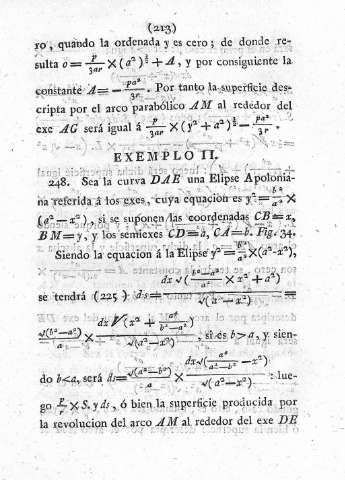 (213)
ro, quando la ordenada y es cero; de donde re-
sulta o = p/3ar × (a²)^(3/2) + A, y por consiguiente la
constante A = − pa²/3r. Por tanto la superficie des-
cripta por el arco parabólico AM al rededor del
exe AG será igual á p/3ar × (y² + a²)^(3/2) − pa²/3r.
EXEMPLO II.
248. Sea la curva DAE una Elipse Apolonia-
na referida á los exes, cuya equacion es y² = b²/a² ×
(a² − x²), si se suponen las coordenadas CB = x,
BM = y, y los semiexes CD = a, CA = b. Fig. 34.
Siendo la equacion á la Elipse y² = b²/a² × (a² − x²),
se tendrá (225) ds = dx √( (b² − a²)/a² × x² + a²) / √(a² − x²) =
√(b² − a²)/a × dx √(x² + a⁴/(b² − a²)) / √(a² − x²), si es b > a, y sien-
do b < a, será ds = √(a² − b²)/a × dx √( a⁴/(a² − b²) − x²) / √(a² − x²) : lue-
go p/r × S. y ds, ó bien la superficie producida por
la revolucion del arco AM al rededor del exe DE